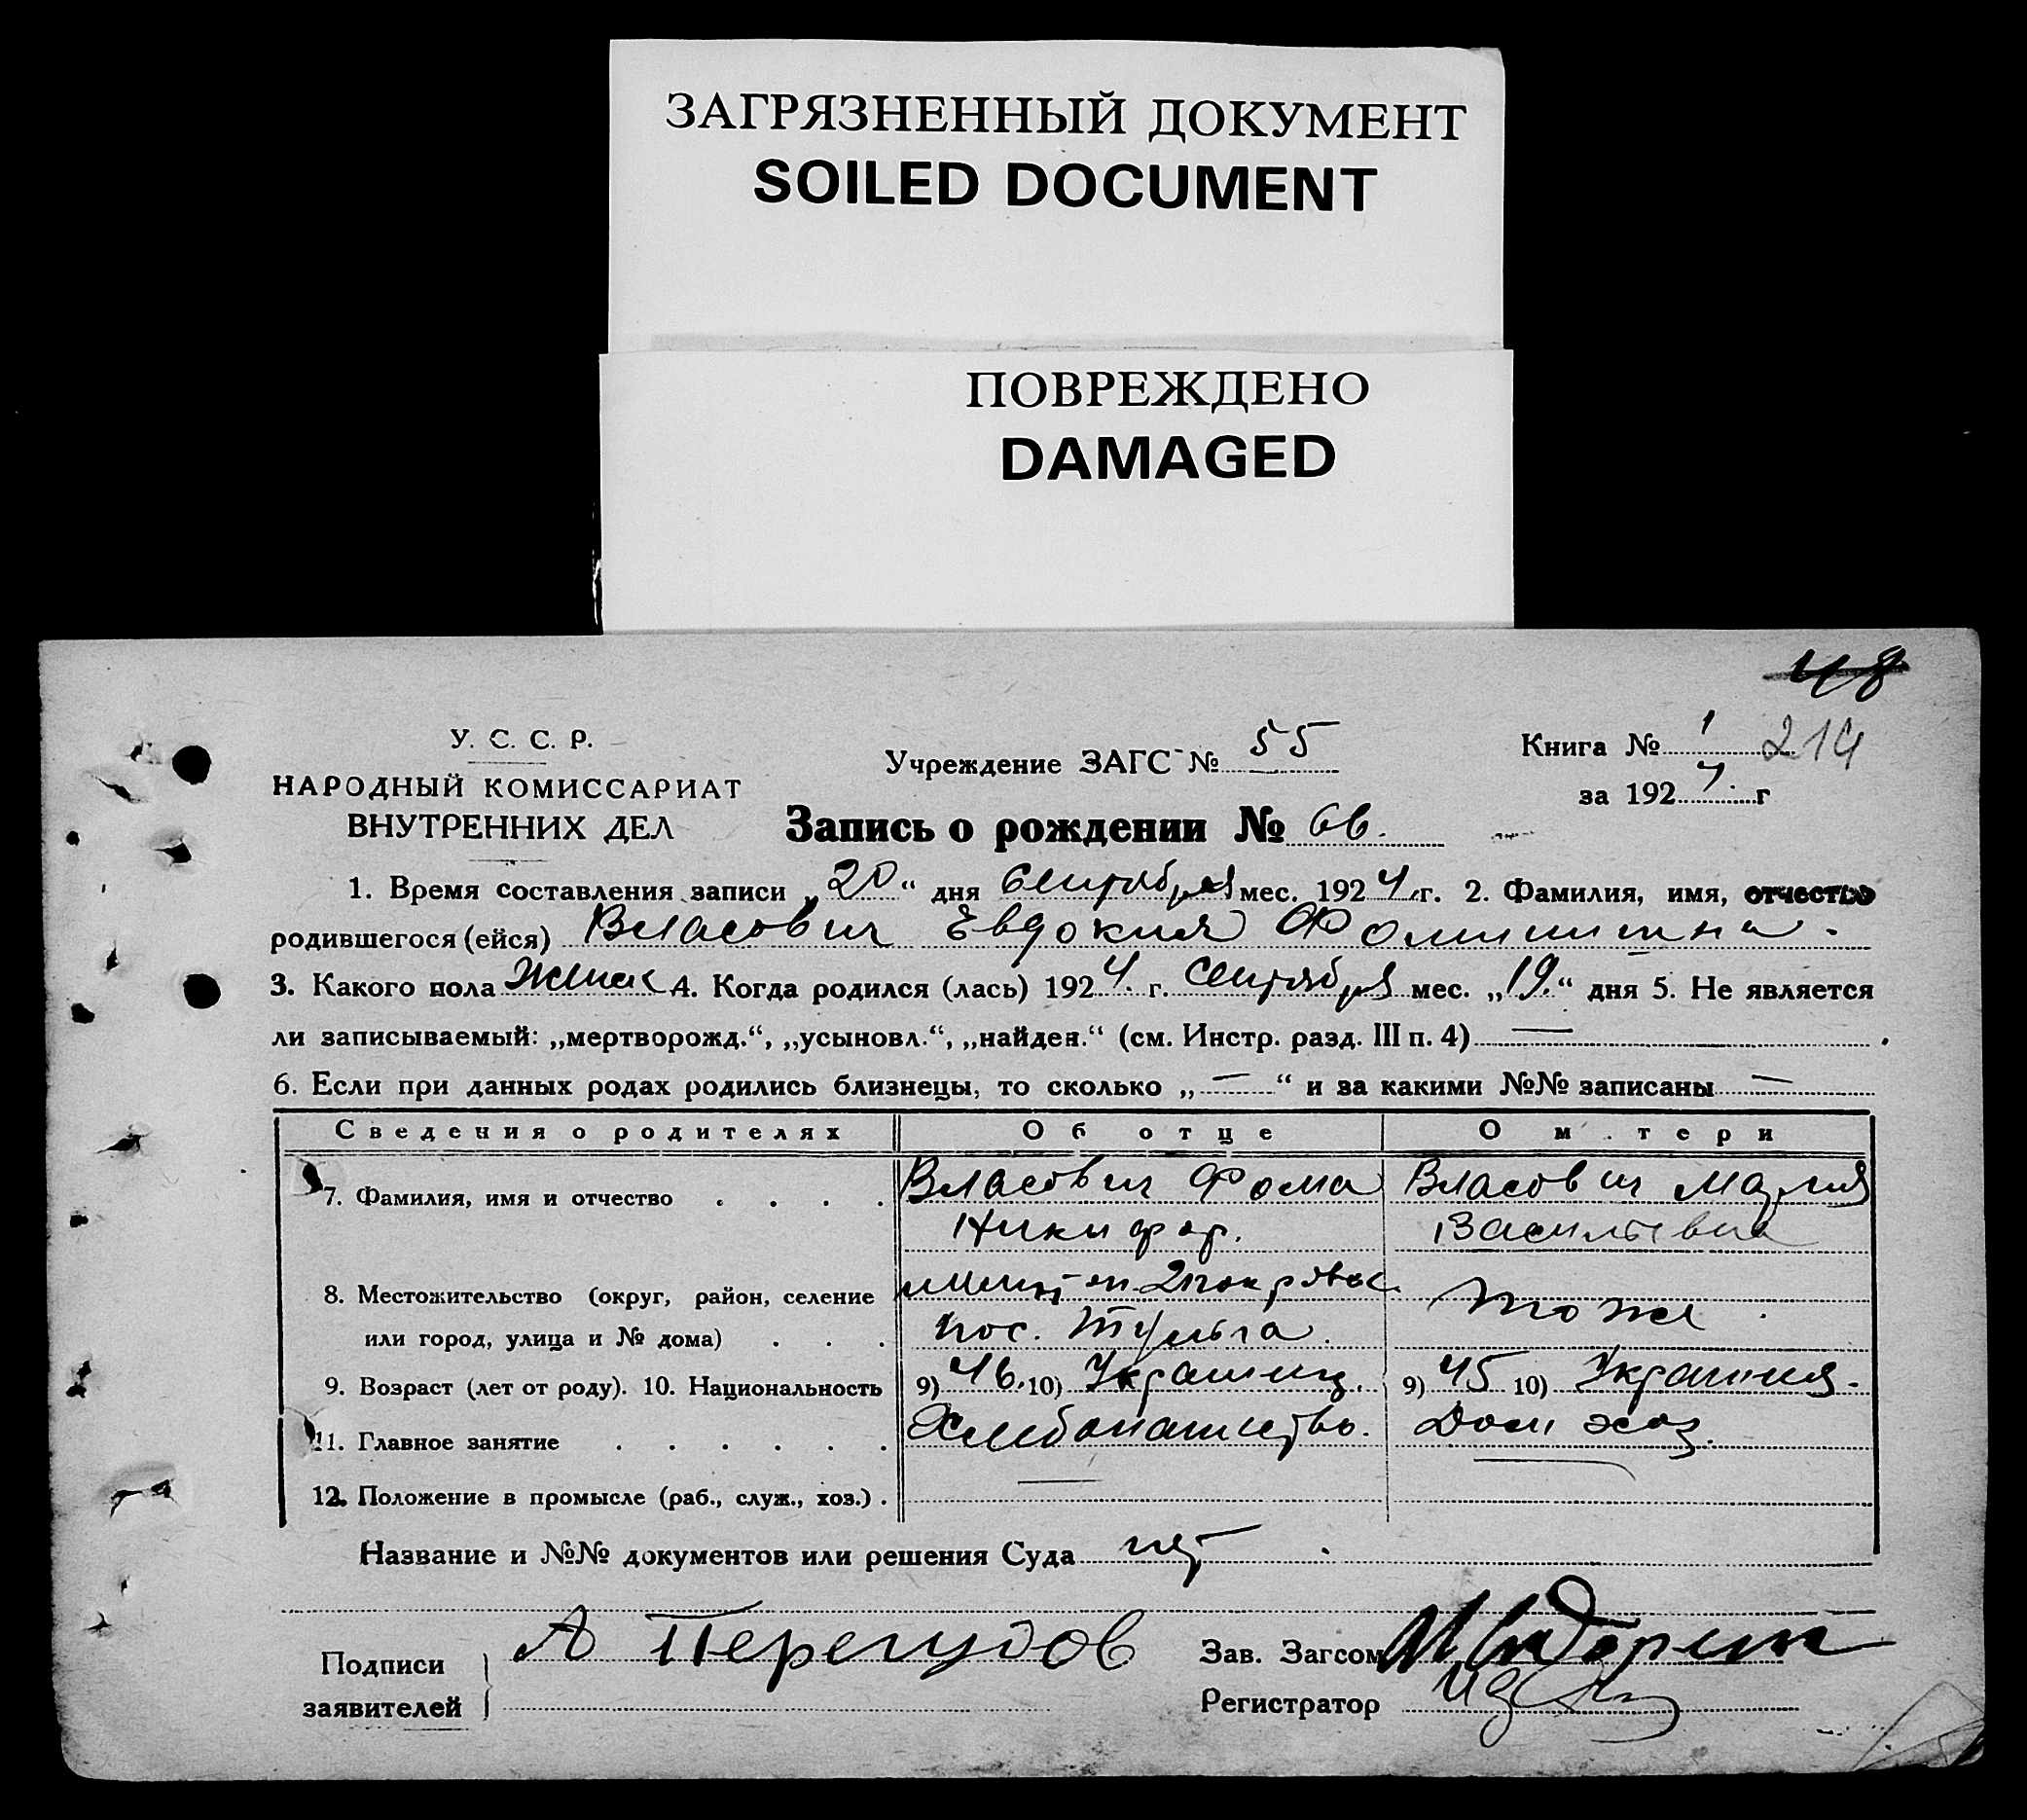 ЗАГРЯЗНЕННЫЙ ДОКУМЕНТ
SOILED DOCUMENT
ПОВРЕЖДЕНО
DAMAGED
48
У. С. С. Р.
НАРОДНЫЙ КОМИССАРИАТ
ВНУТРЕННИХ ДЕЛ
Учреждение ЗАГС № 55
Книга № 1 214
за 1924 г
Запись о рождении № 66.
1. Время составления записи „20“ дня Сентября мес. 1924 г. 2. Фамилия, имя, отчество
родившегося (ейся) Власович Евдокия Фоминишна.
3. Какого пола Женск 4. Когда родился (лась) 1924 г. Сентября мес. „19.“ дня 5. Не является
ли записываемый: „мертворожд.“, „усыновл.“, „найден.“ (см. Инстр. разд. III п. 4) — .
6. Если при данных родах родились близнецы, то сколько „—“ и за какими №№ записаны —
Сведения о родителях Об отце О м.тери
7. Фамилия, имя и отчество . . . . Власович Фома Власович Мария
Никифор. Васильевна
8. Местожительство (округ, район, селение
или город, улица и № дома) . . . пос. тоже
9. Возраст (лет от роду). 10. Национальность 9) 46. 10) Украинец. 9) 45 10) Украиния.
11. Главное занятие . . . . . . Хлебопашество. Дом хоз.
12. Положение в промысле (раб., служ., хоз.) . — —
Название и №№ документов или решения Суда нет.
Подписи
заявителей
А Перегудов
Зав. Загсом
Регистратор